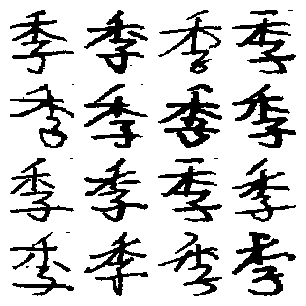 季季季季
季季季季
季季季季
季季季季